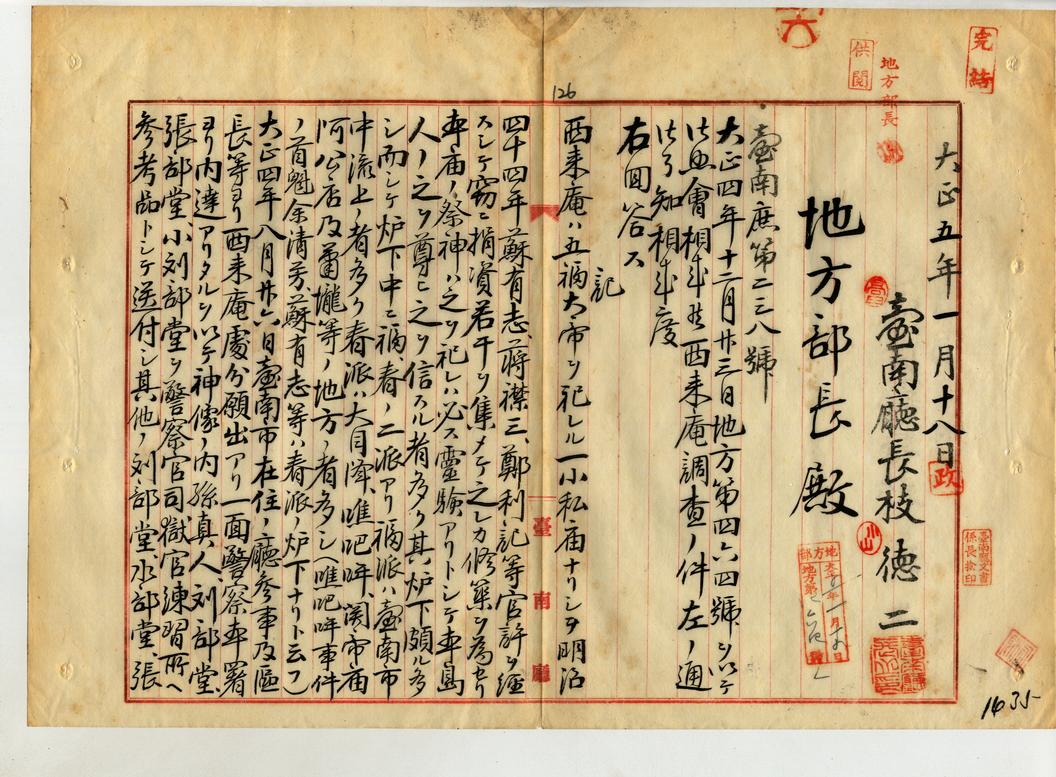 完結
地方部長
供閲
大正五年一月十八日
政
臺南廳長枝德二
地方部長殿
臺南庶第二三八號
大正四年十二月廿三日地方第四六四號ヲ以テ
御照會相成候西来庵調查ノ件左ノ通
御了知相成度
右回答ス
記
126
西来庵ハ五福大帝ヲ祀レル一小私庙ナリシヲ明治
四十四年蘇有志、蔣襟三、鄭利記等官許ヲ経
スシテ窃ニ捐資若干ヲ集メテ之レカ修築ヲ為セリ
本庙ノ祭神ハ之ヲ祀レハ必ス靈驗アリトシテ本島
人ノ之ヲ尊ヒ之ヲ信スル者多ク其炉下頗ル多
シ而シテ炉下中ニ福春ノ二派アリ福派ハ臺南市
中流上ノ者多ク春派ハ大目降、噍吧哖、関帝庙
阿公店及蕭壠等ノ地方ノ者多シ(噍吧哖事件
ノ首魁余清芳、蘇有志等ハ春派ノ炉下ナリト云フ)
大正四年八月廿六日臺南市在住ノ廳参事及區
長等ヨリ西来庵處分願出アリ一面警察本署
ヨリ内達アリタルヲ以テ神像ノ内孫真人、刘部堂、
張部堂、小刘部堂ヲ警察官司獄官練習所ヘ
参考品トシテ送付シ其他ノ刘部堂、水部堂、張
臺南廳
小山
1435